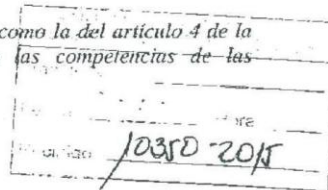 como la del artículo 4 de la
las competencias de las
10350-2015